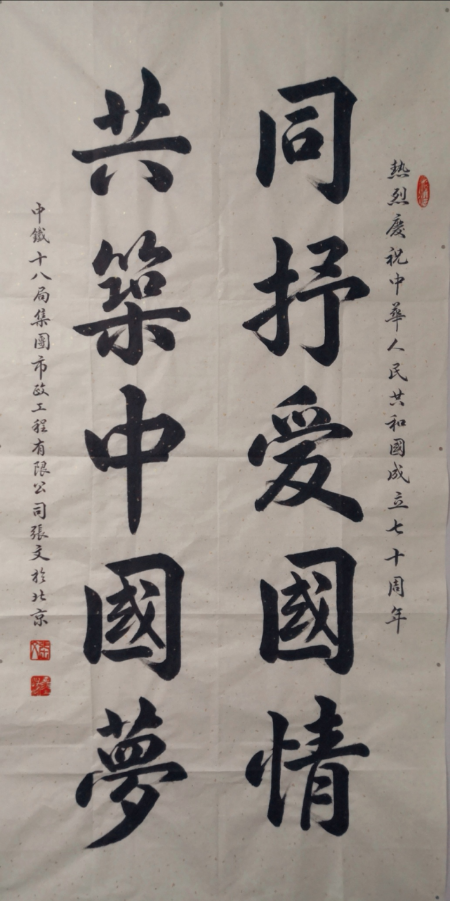 熱烈慶祝中華人民共和國成立七十周年
同抒爱國情
共築中國夢
中鐵十八局集團市政工程有限公司張文於北京